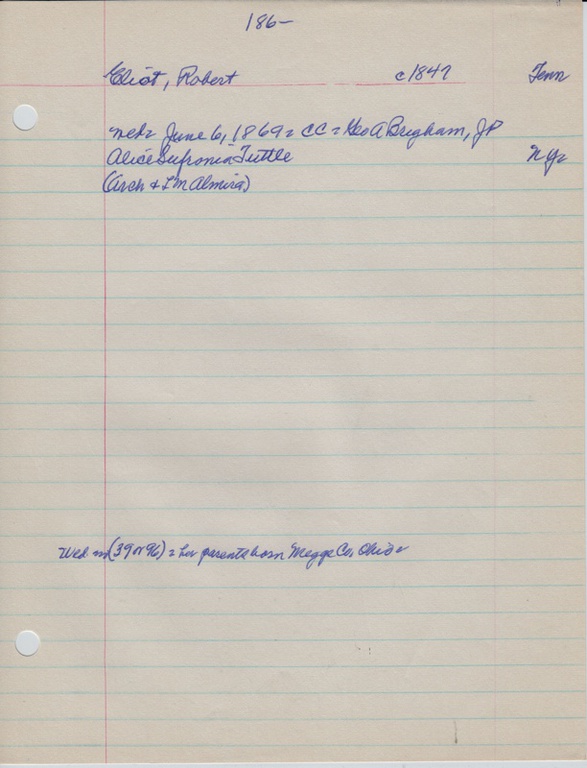 186-
Eliot, Robert c1847 Tenn
wed= June 6, 1869= CC= Geo A Brigham, JP
Alice Sufronia Tuttle N.Y.
(Arch & Almira)
Wed in (39 or 96) = her parents born Co, Ohio=